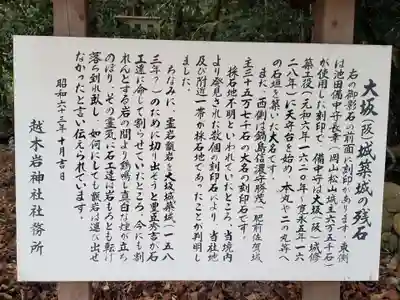 大坂(阪)城築城の残石
右の御影石の前面に刻印があります。東側
は池田備中守長幸(岡山松山城主六万五千石)
が使用した刻印で、備中守は大坂(阪)城修
築主役(元和六年一六二〇年~寛永五年一六
二八年)に天守台を始め、本丸や二の丸等へ
の石垣を築いた大名です。
また、西側は鍋島信濃守勝茂(肥前佐賀城
主三十五万七千石)の大名の刻印石です。
採石地不明といわれていたところ、当境内
より発見された数個の刻印石により、当社地
及び附近一帯が採石地であったことが判明し
ました。
ちなみに、霊岩甑岩を大坂城築城(一五八
三年?)のために切り出そうと豊臣秀吉が石
工達に命じて割らせていたところ、今にも割
れんとする岩の間より鶏鳴し真白な煙が立ち
のぼり、その霊気に石工達は岩もろとも転げ
落ち倒れ臥し、如何にしても甑岩は運び出せ
なかったと言い伝えられています。
昭和六十三年十月吉日
越木岩神社社務所